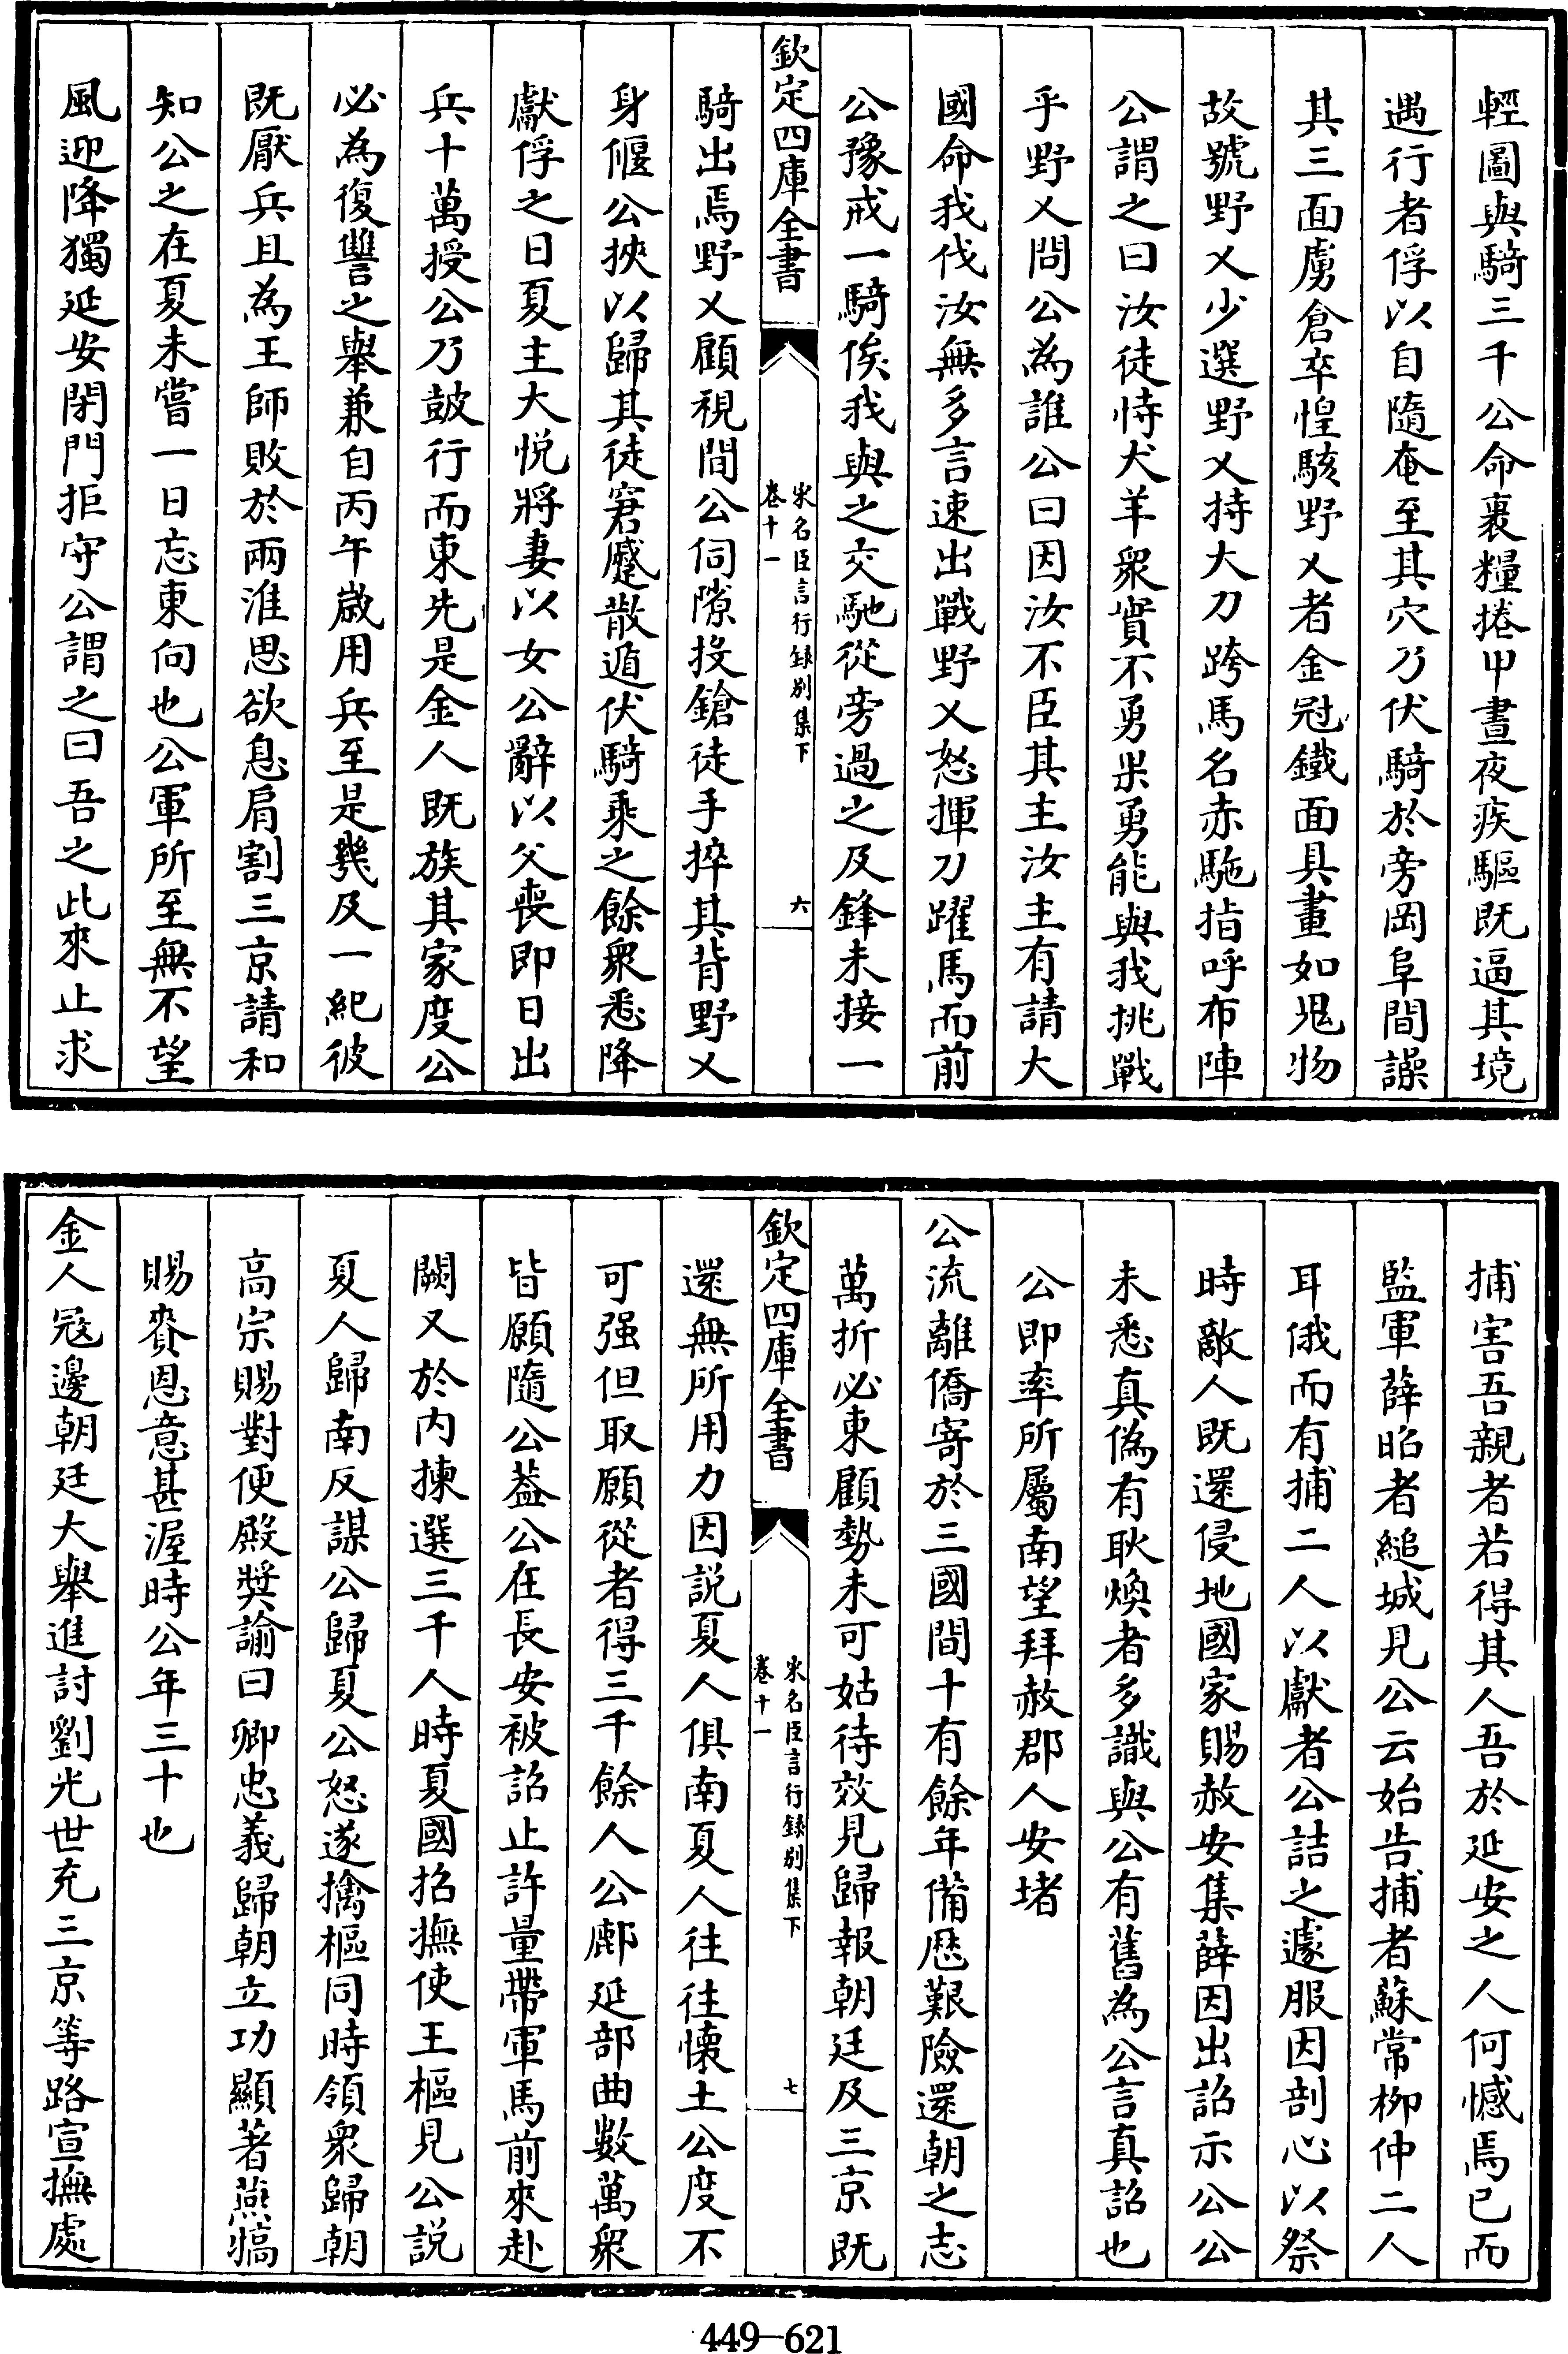 輕圖與騎三千公命裹糧捲甲晝夜疾驅既逼其境
遇行者俘以自隨奄至其穴乃伏騎於旁岡阜間譟
其三面虜倉卒惶駭野乂者金冠鐵面具畫如鬼物
故號野乂少選野乂持大刀跨馬名赤駞指呼布陣
公謂之曰汝徒恃犬羊衆實不勇果勇能與我挑戰
乎野乂問公為誰公曰因汝不臣其主汝主有請大
國命我伐汝無多言速出戰野乂怒揮刀躍馬而前
公豫戒一騎俟我與之交馳從旁過之及鋒未接一
欽定四庫全書
宋名臣言行録别集下
卷十一
六
騎出焉野乂顧視間公伺隙投鎗徒手捽其背野乂
身偃公挾以歸其徒窘蹙散遁伏騎乘之餘衆悉降
獻俘之日夏主大悦將妻以女公辭以父喪即日出
兵十萬授公乃鼓行而東先是金人既族其家度公
必為復讐之舉兼自丙午嵗用兵至是幾及一紀彼
既厭兵且為王師敗於兩淮思欲息肩割三京請和
知公之在夏未嘗一日忘東向也公軍所至無不望
風迎降獨延安閉門拒守公謂之曰吾之此來止求
捕害吾親者若得其人吾於延安之人何憾焉已而
監軍薛昭者縋城見公云始告捕者蘇常柳仲二人
耳俄而有捕二人以獻者公詰之遽服因剖心以祭
時敵人既還侵地國家賜赦安集薛因出詔示公公
未悉真偽有耿煥者多識與公有舊為公言真詔也
公即率所屬南望拜赦郡人安堵
公流離僑寄於三國間十有餘年備厯艱險還朝之志
萬折必東顧勢未可姑待效見歸報朝廷及三京既
欽定四庫全書
宋名臣言行録别集下
卷十一
七
還無所用力因説夏人俱南夏人往往懐土公度不
可强但取願從者得三千餘人公鄜延部曲數萬衆
皆願隨公葢公在長安被詔止許量帶軍馬前來赴
闕又於内揀選三千人時夏國招撫使王樞見公説
夏人歸南反謀公歸夏公怒遂擒樞同時領衆歸朝
高宗賜對便殿奬諭曰卿忠義歸朝立功顯著燕犒
賜賚恩意甚渥時公年三十也
金人冦邊朝廷大舉進討劉光世充三京等路宣撫處
449—621